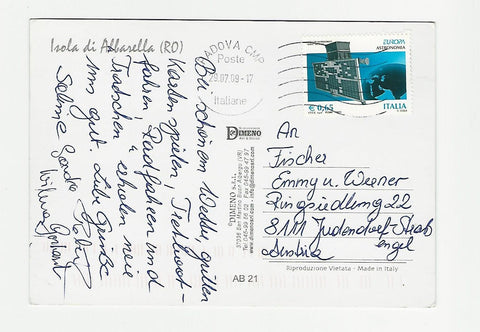 Isola di Albarella (RO)
Bei schönem Wetter, grillen
Kartenspielen, Tretboot-
fahren Radfahren und
Tratschen erholen wir
uns gut. Liebe Grüße
Sabine Sandra
PADOVA CMP
Poste
29.07.09-17
Italiane
EUROPA
ASTRONOMIA
€ 0,65
ITALIA
DIMENO
© DIMENO s.r.l.
An
Fischer
Emmy u. Werner
Ringsiedlung 22
8111 Judendorf-Straß
engel
Austria
Riproduzione Vietata - Made in Italy
AB 21